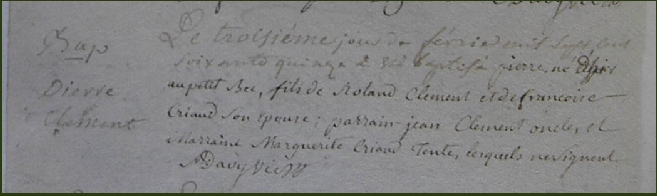 Bap
Pierre
Clement
Le troisiéme jour de février mil sept cent
soixante quinze à été baptisé pierre, né d'hier
au petit Bec, fils de Roland Clement et de francoise
Criaud Son Epouse; parrain jean Clement oncle, et
Marraine Marguerite Criaud Tante, lesquels ne signent